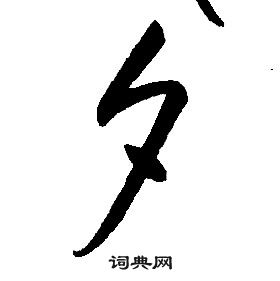 夕
词典网